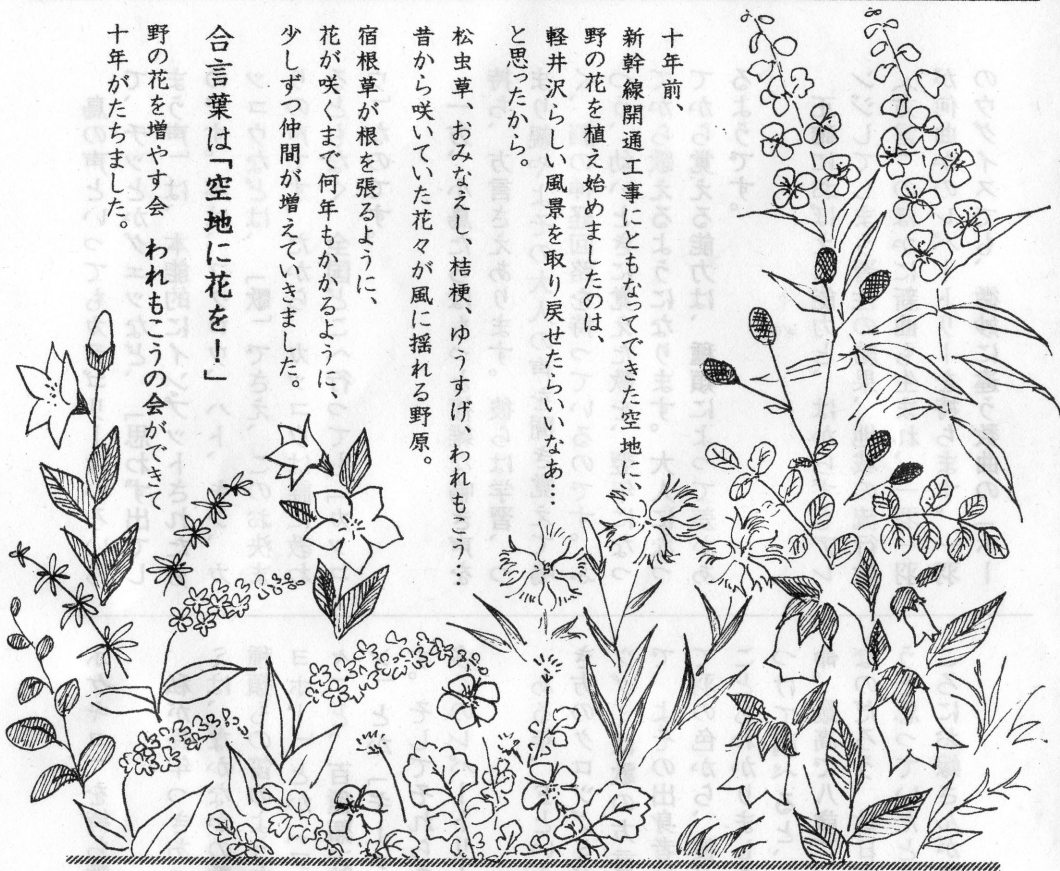 十年前、
新幹線開通工事にともなってできた空地に、
野の花を植え始めましたのは、
軽井沢らしい風景を取り戻せたらいいなあ…
と思ったから。
松虫草、おみなえし、桔梗、ゆうすげ、われもこう…
昔から咲いていた花々が風に揺れる野原。
宿根草が根を張るように、
花が咲くまで何年もかかるように、
少しずつ仲間が増えていきました。
合言葉は「空地に花を！」
野の花を増やす会　われもこうの会ができて
十年がたちました。